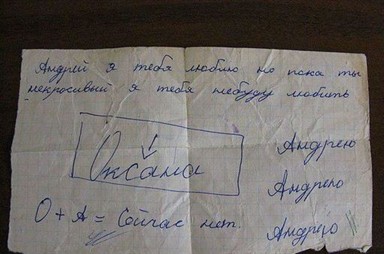 Андрей я тебя люблю но пока ты
некрасивый я тебя небуду любить
Оксана
Андрею
Андрею
Андрею
О + А = Сейчас нет.